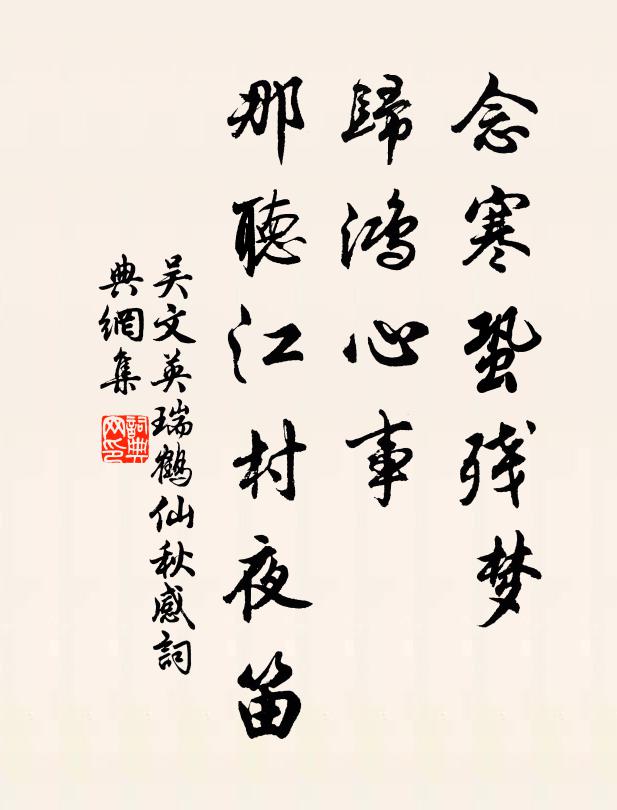 念寒蛩残梦
歸鴻心事
那聽江村夜笛
吴文英瑞鶴仙秋感詞
典網集
詞典
网印